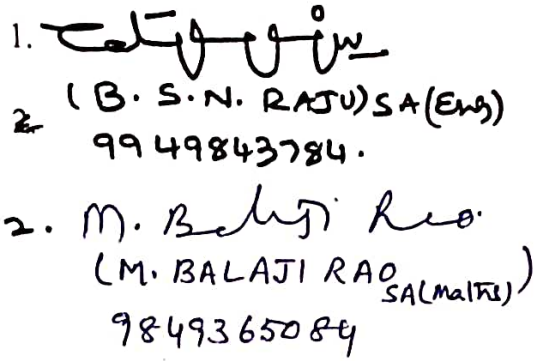 1.
(B. S. N. RAJU) SA (Eng)
2
9949843784.
2. M. Balaji Rao.
(M. BALAJI RAO SA (Maths))
9849365084